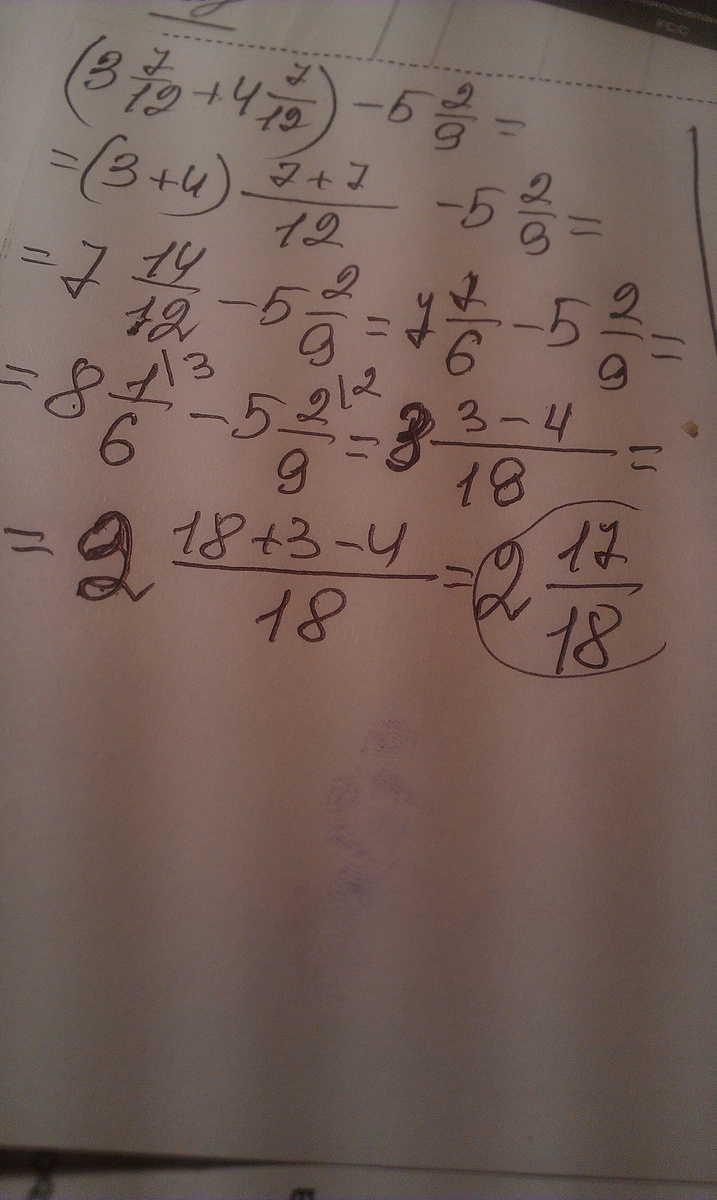 FCC
(3 7/12 + 4 7/12) − 5 2/9 =
= (3 + 4) (7 + 7)/12 − 5 2/9 =
= 7 14/12 − 5 2/9 = 7 7/6 − 5 2/9 =
= 8 1/6 \3 − 5 2/9 \2 = 3 (3 − 4)/18 =
= 2 (18 + 3 − 4)/18 = 2 17/18